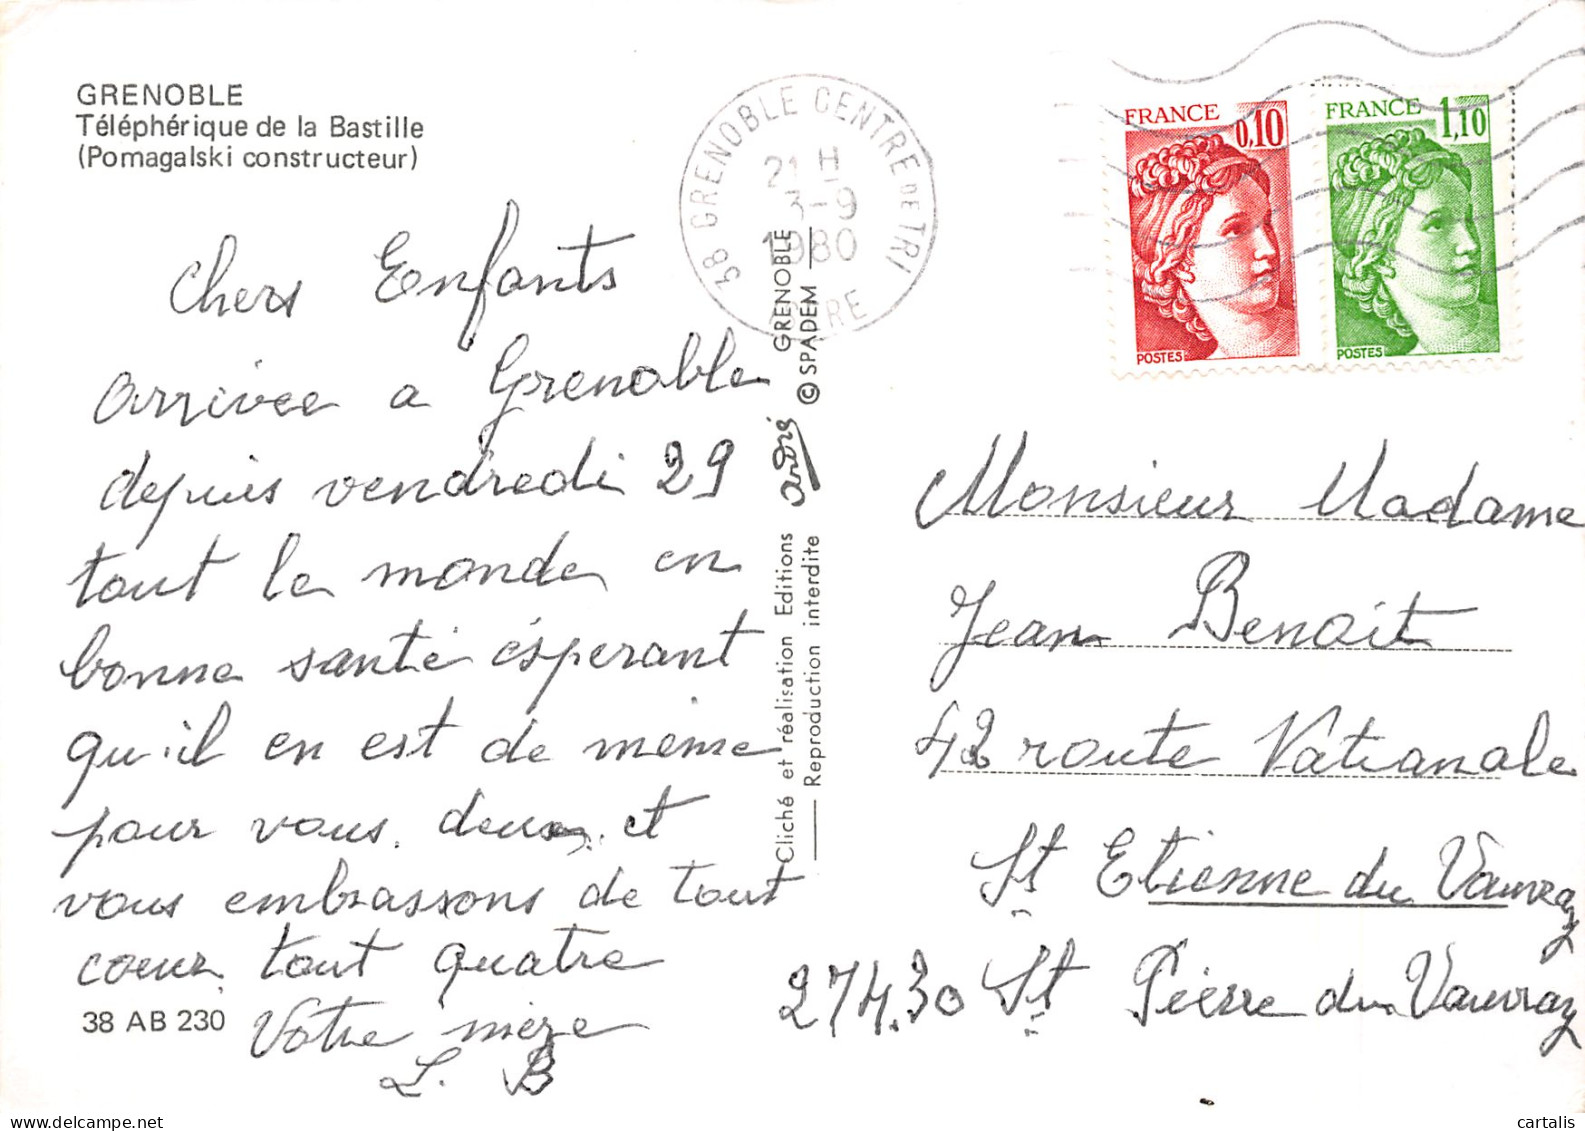 GRENOBLE
Téléphérique de la Bastille
(Pomagalski constructeur)
Chers Enfants
arrivée a Grenoble
depuis vendredi 29
tout le monde en
bonne santé ésperant
qu'il en est de même
pour vous. deux et
vous embrassons de tout
cœur tout quatre
Votre mère
L. B
38 AB 230
38 GRENOBLE CENTRE DE TRI
21 H
3-9
1980
ISERE
Cliché et réalisation Editions andré GRENOBLE
Reproduction interdite © SPADEM
FRANCE 0,10
POSTES
FRANCE 1,10
POSTES
Monsieur Madame
Jean Benoit
42 route Nationale
St Etienne du Vauvray
27430 St Pierre du Vauvray
cartalis